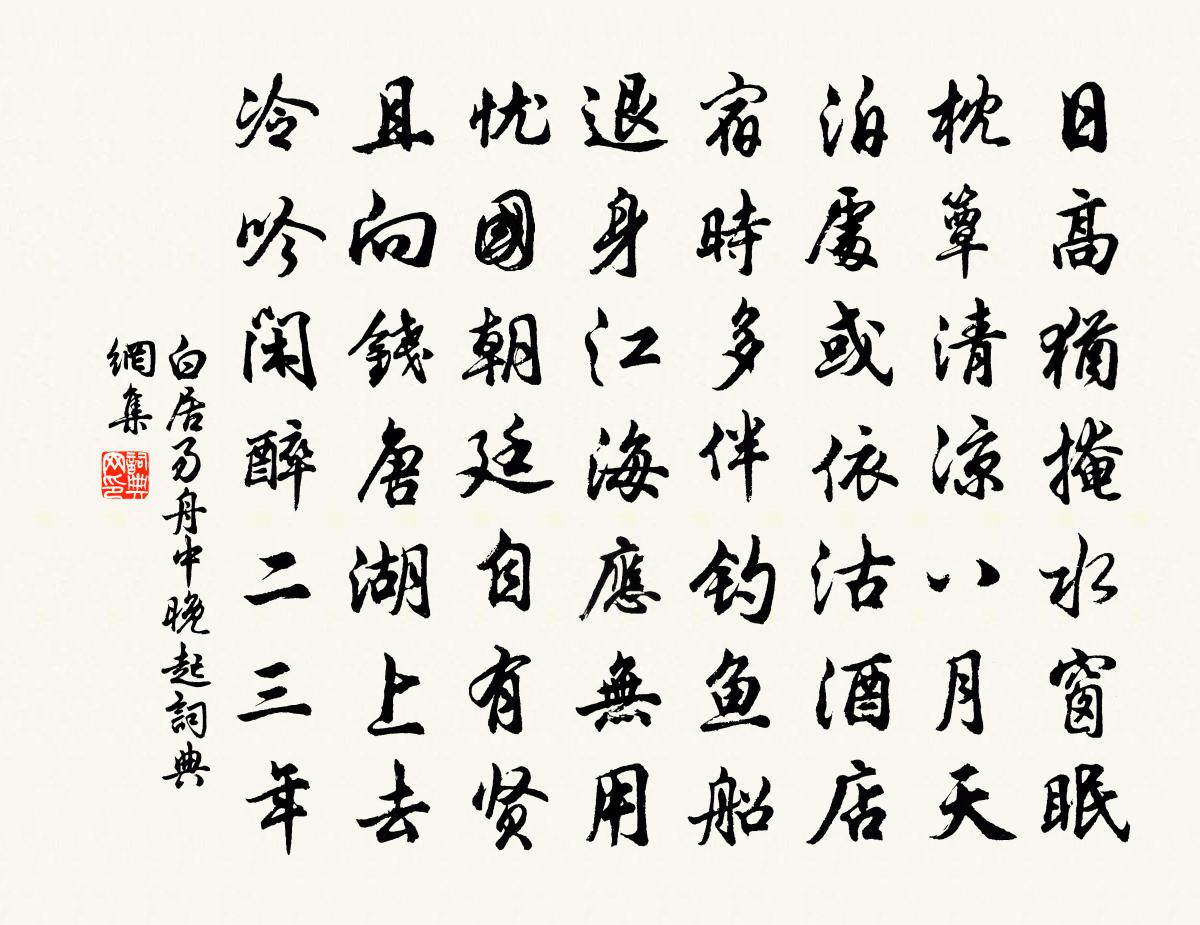 日高猶掩水窗眠
枕簟清涼八月天
泊處或依沽酒店
宿時多伴釣魚船
退身江海應無用
忧國朝廷自有贤
且向錢唐湖上去
冷吟闲醉二三年
白居易舟中晚起詞典
網集
詞典网